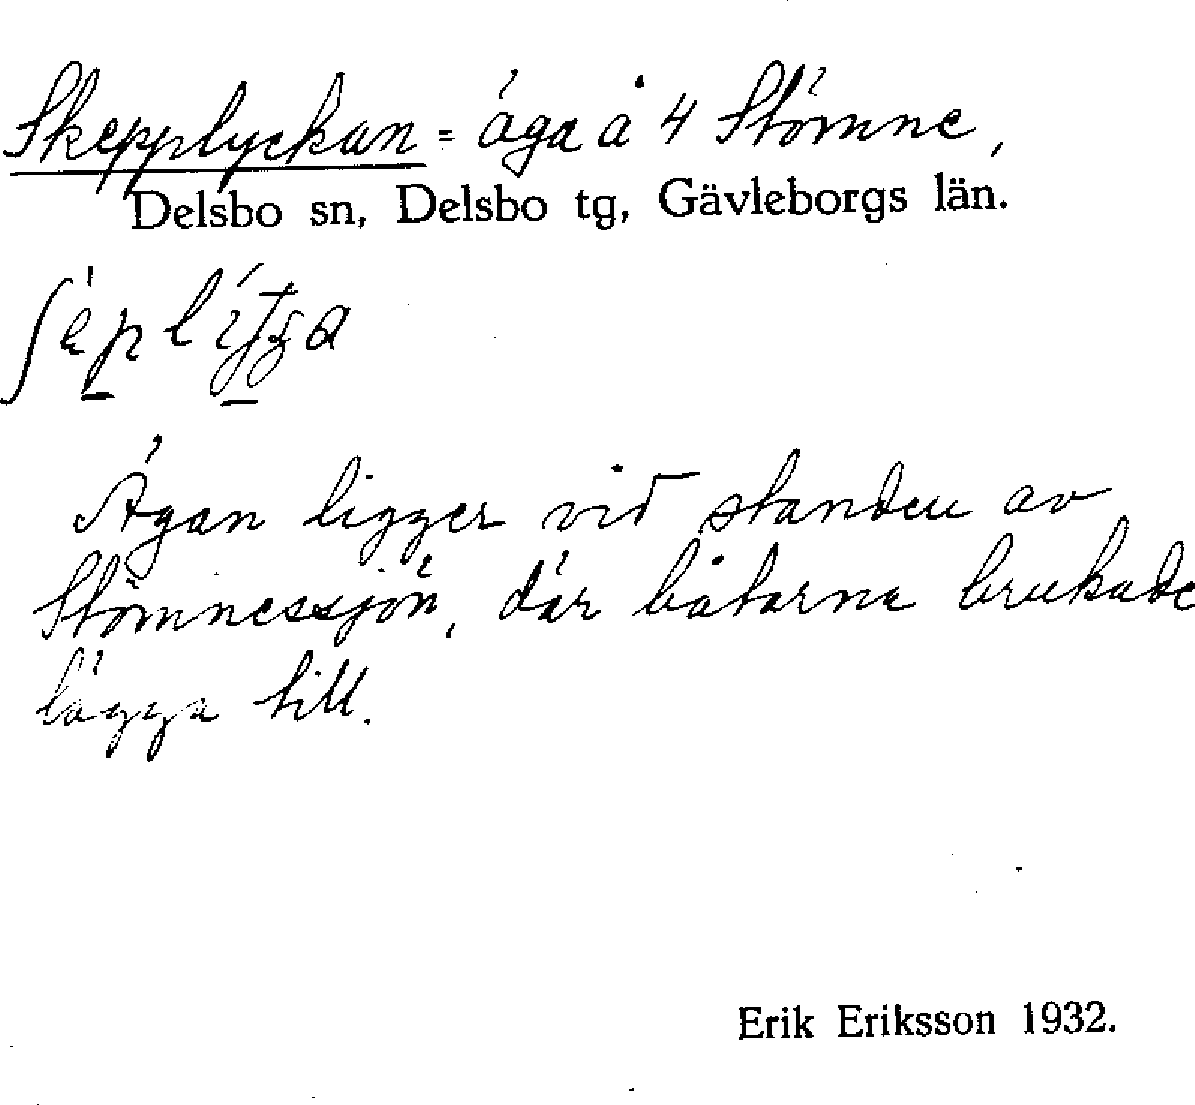 Skepplyckan = äga å 4 Stömne,
Delsbo sn, Delsbo tg, Gävleborgs län.
Ägan ligger vid standen av
Stömnessjön, där båtarna brukade
lägga till.
Erik Eriksson 1932.